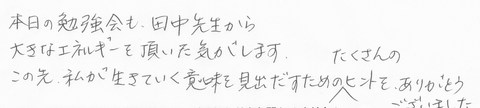 本日の勉強会も、田中先生から
大きなエネルギーを頂いた気がします。
たくさんの
この先、私が生きていく意味を見出だすためのヒントを、ありがとう
ございました